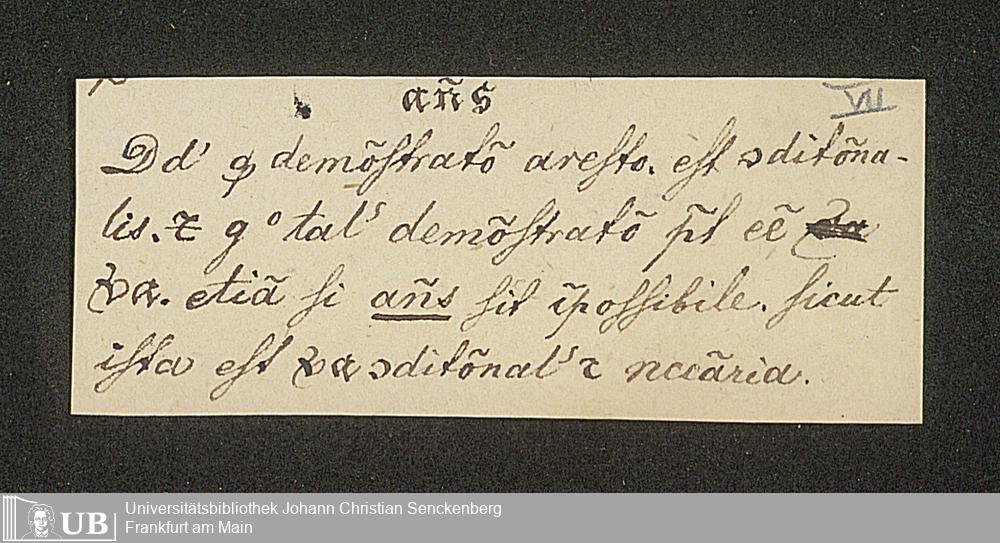 añs
VII
Dd' ꝙ demõſtratõ areſto. eſt ↄditõna-
lis. ⁊ gº tal' demõſtratõ p̃t eẽ
va. etiã ſi añs ſit ĩpoſſibile. ſicut
iſta eſt va ↄditõnal' ⁊ nccãria.
UB
Universitätsbibliothek Johann Christian Senckenberg
Frankfurt am Main